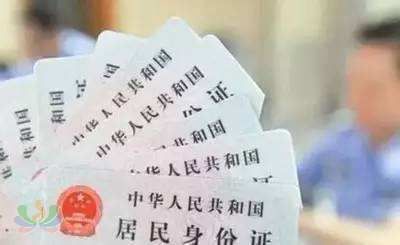 中华人民共和国
份证
中华人民共和国
中华人民共和国
中华人民共和国
中华人民共和国
居民身份证